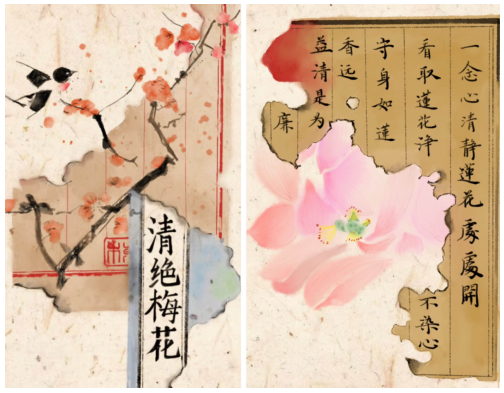 清绝梅花
一念心清静蓮花處處開
看取蓮花淨
不染心
守身如蓮
香远
益清是为
廉